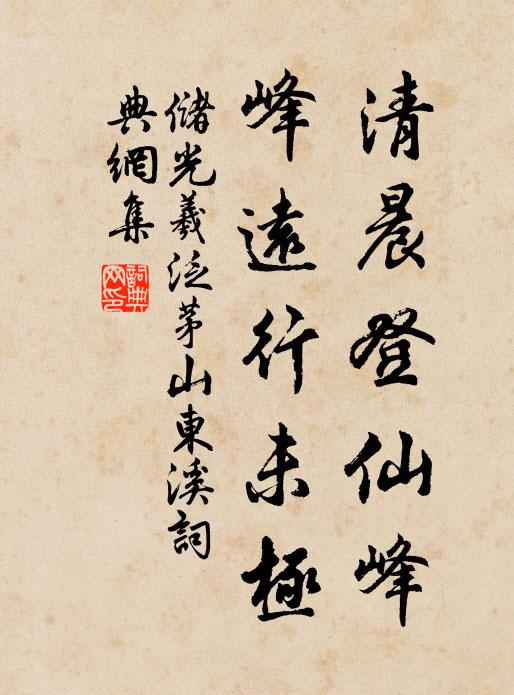 清晨登仙峰
峰遠行未極
儲光羲泛茅山東溪詞
典網集
詞典網印